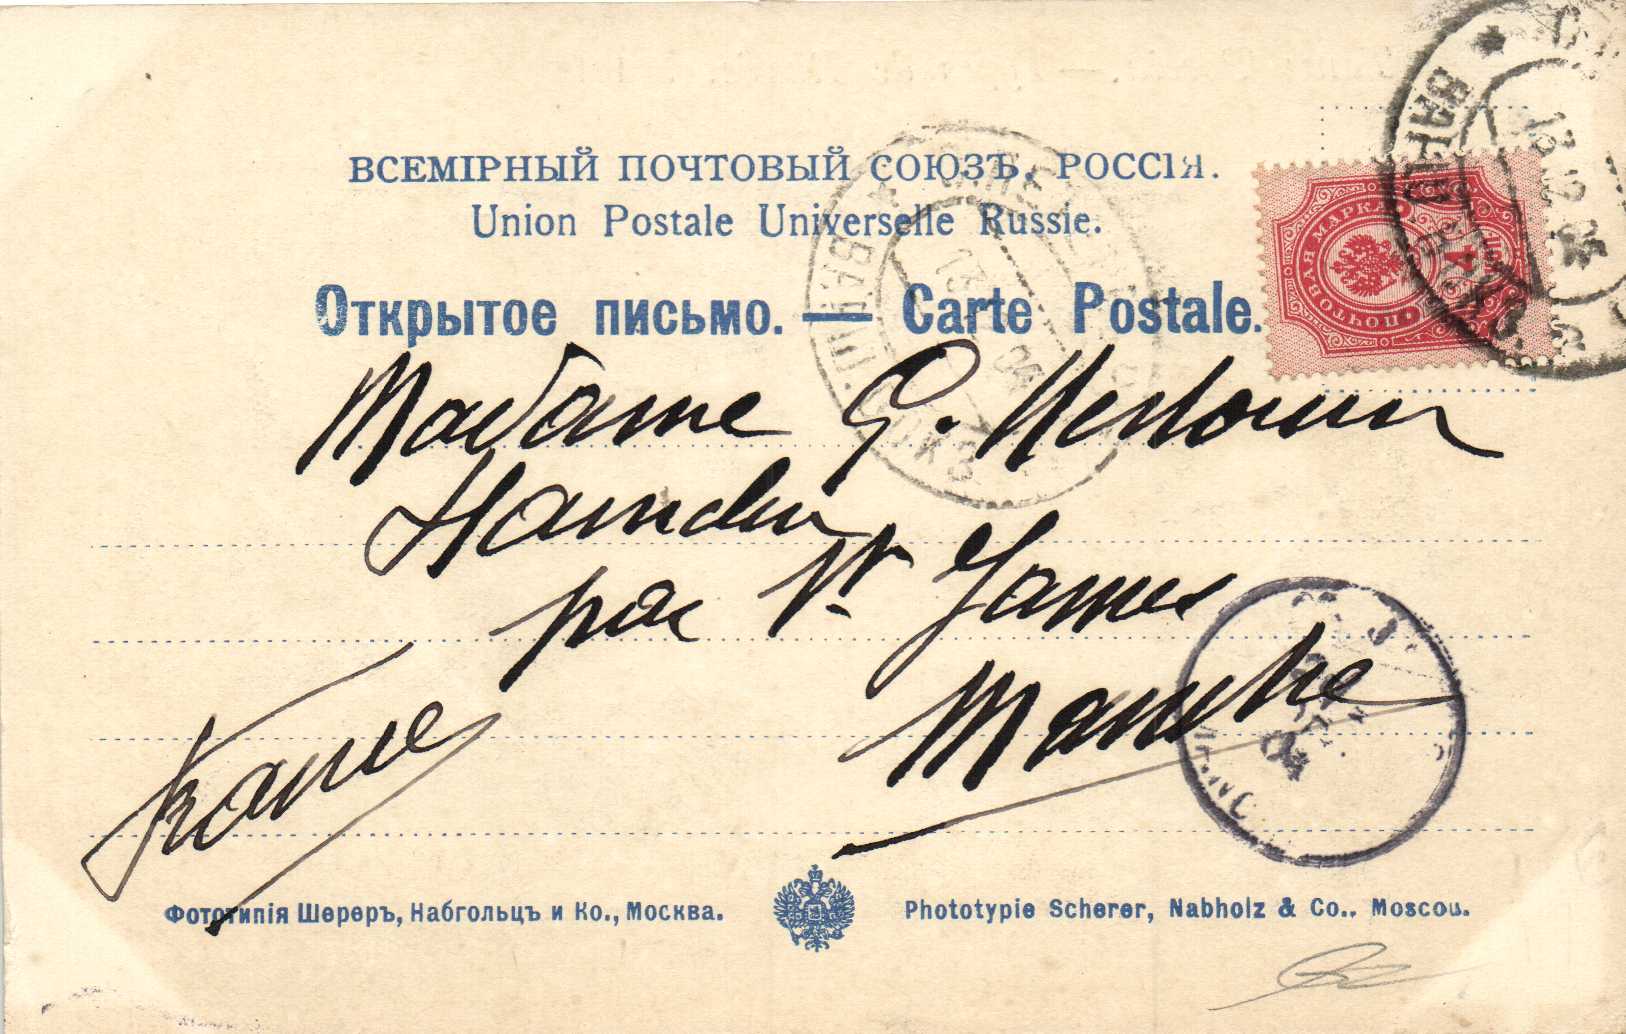 ВСЕМІРНЫЙ ПОЧТОВЫЙ СОЮЗЪ. РОССІЯ.
Union Postale Universelle Russie.
ПОЧТОВАЯ МАРКА
4
13 12 04
Открытое письмо. — Carte Postale.
Madame G.
par St. James
Manche
France
04
Фототипія Шереръ, Набгольцъ и Ко., Москва.
Phototypie Scherer, Nabholz & Co.. Moscou.